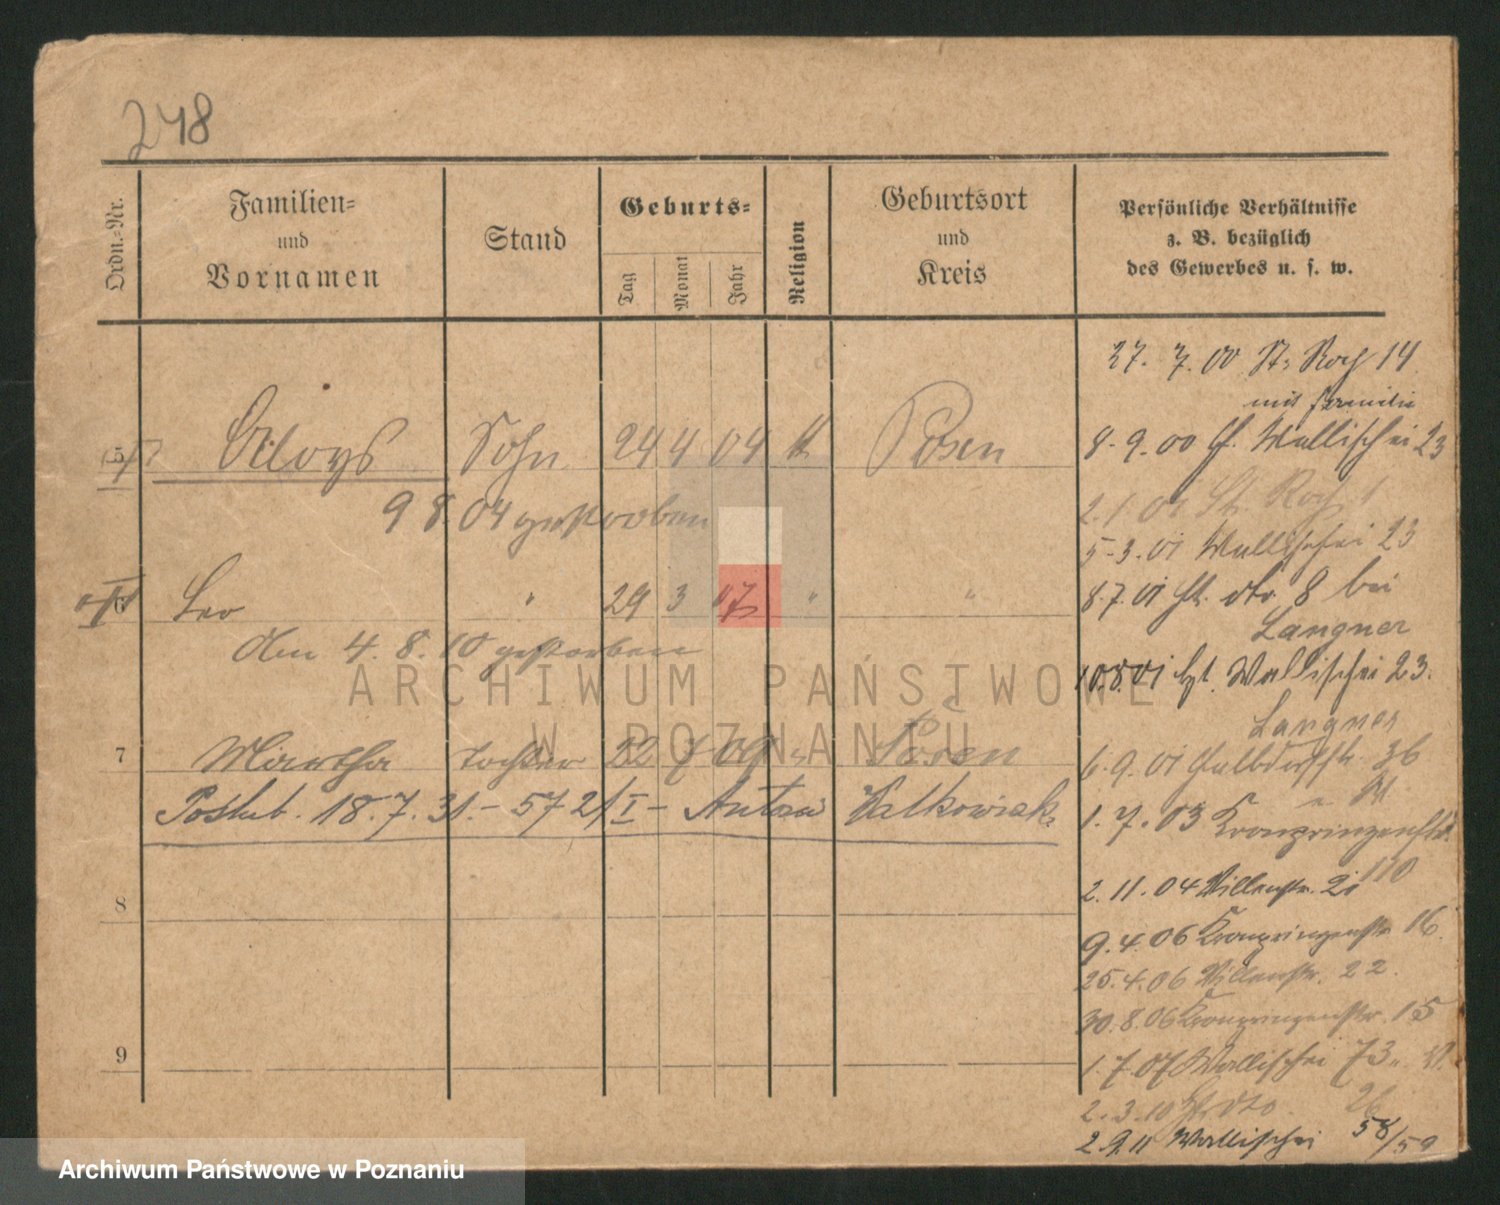 248
Ordn.-Nr.
Familien-
und
Vornamen
Stand
Geburts-
Tag
Monat
Jahr
Religion
Geburtsort
und
Kreis
Persönliche Verhältnisse
z. B. bezüglich
des Gewerbes u. s. w.
5 Aloys Sohn 24 4 04 K Posen
9 8. 04 gestorben
6 Leo " 29 3 07 " "
Am 4. 8. 10 gestorben
7 Martha Tochter 22 7 09 " Posen
Poślub. 18. 7. 31. - 572/I - Antoni Walkowiak
8
9
27. 7. 00 St. Roch 14
mit Familie
8. 9. 00 Wallischei 23
2. 1. 01 St. Roch 1
5. 3. 01 Wallischei 23
8. 7. 01 St. dto 8 bei
Langner
10.8.01 Wallischei 23.
Langner
6. 9. 01 36
1. 7. 03 Kronprinzenstr.
110
2. 11. 04 Villenstr. 21
9. 4. 06 Kronprinzenstr. 16.
25. 4. 06 Villenstr. 22.
30. 8. 06 Kronprinzenstr. 15
1. 7. 07 Wallischei 73
2. 3. 10 dto 26
2.9.11 Wallischei 58/59
ARCHIWUM PAŃSTWOWE
W POZNANIU
Archiwum Państwowe w Poznaniu